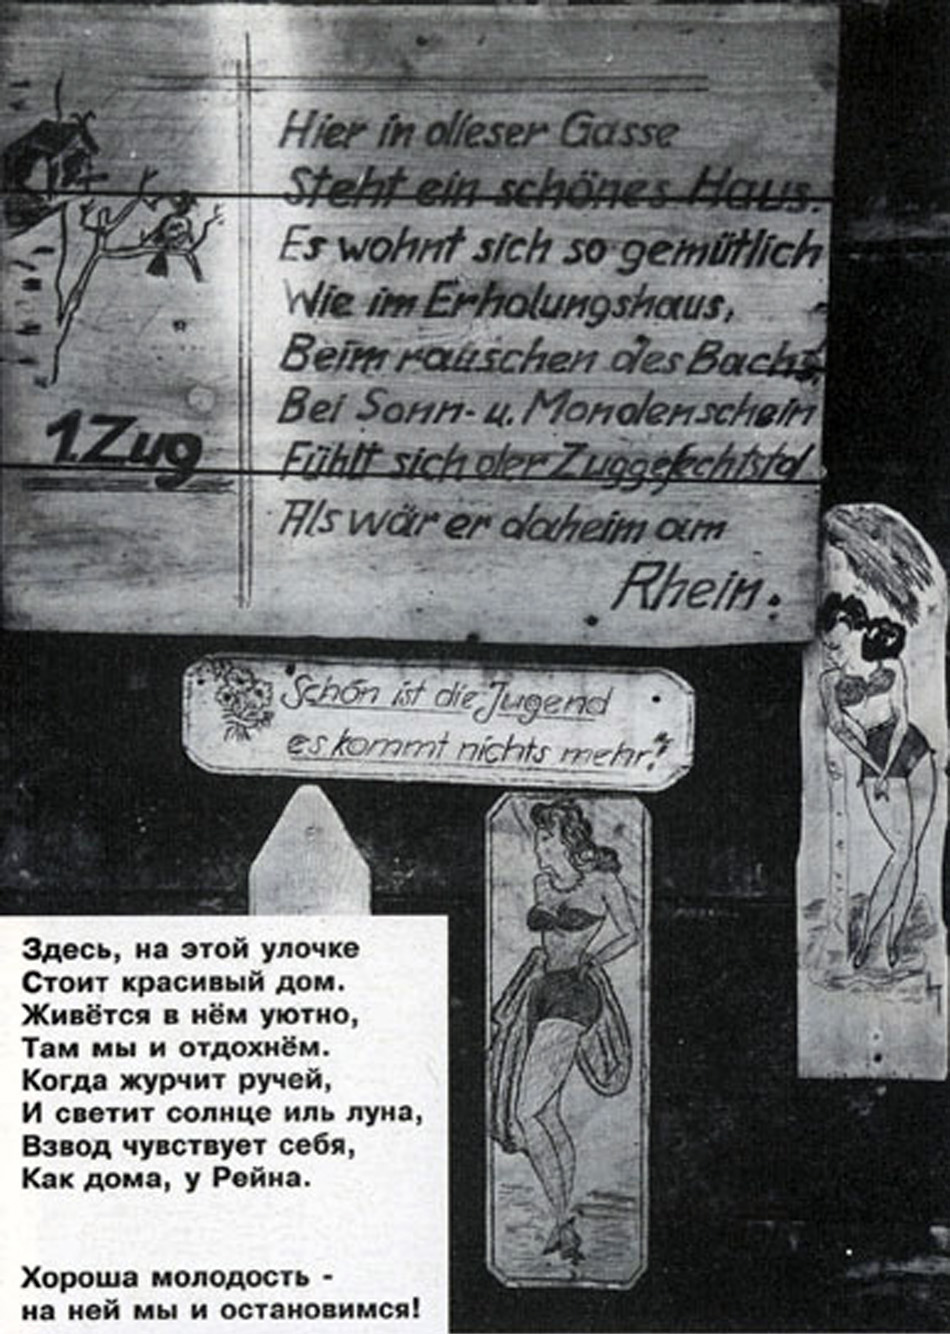 Hier in dieser Gasse
Steht ein schönes Haus.
Es wohnt sich so gemütlich
Wie im Erholungshaus,
Beim rauschen des Bachs,
Bei Sonn- u. Mondenschein
Fühlt sich der Zuggefechtstd.
Als wär er daheim am
Rhein.
1. Zug
Schön ist die Jugend
es kommt nichts mehr!
Здесь, на этой улочке
Стоит красивый дом.
Живётся в нём уютно,
Там мы и отдохнём.
Когда журчит ручей,
И светит солнце иль луна,
Взвод чувствует себя,
Как дома, у Рейна.
Хороша молодость -
на ней мы и остановимся!